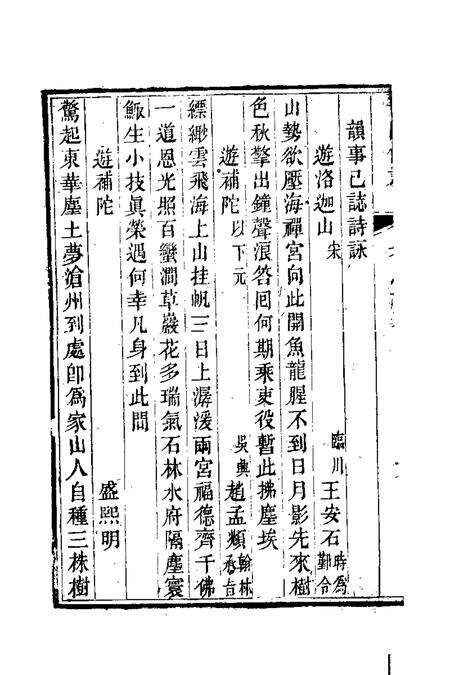 韻事已誌詩詠
遊洛迦山 宋 臨川 王安石 時為鄞令
山勢欲壓海禪宮向此開魚龍腥不到日月影先來樹
色秋擎出鐘聲浪答回何期乘吏役暫此拂塵埃
遊補陀 以下元 吳興 趙孟頫 翰林承旨
縹緲雲飛海上山挂帆三日上潺湲兩宮福德齊千佛
一道恩光照百蠻澗草巖花多瑞氣石林水府隔塵寰
鯫生小技真榮遇何幸凡身到此間
遊補陀 盛熙明
驚起東華塵土夢滄州到處卽為家山人自種三株樹